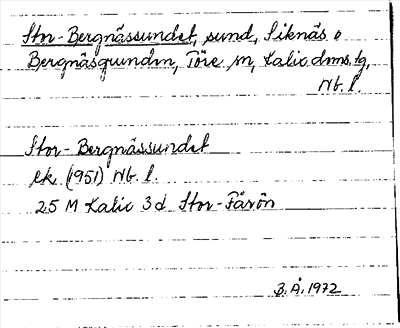 Stor-Bergnässundet, sund, Siknäs o
Bergnäsgrunden, Töre sn, Kalix dms. tg,
Nb. l.
Stor-Bergnässundet
ek (1951) Nb. l.
25 M Kalix 3d Stor-Färön
B. Å. 1972